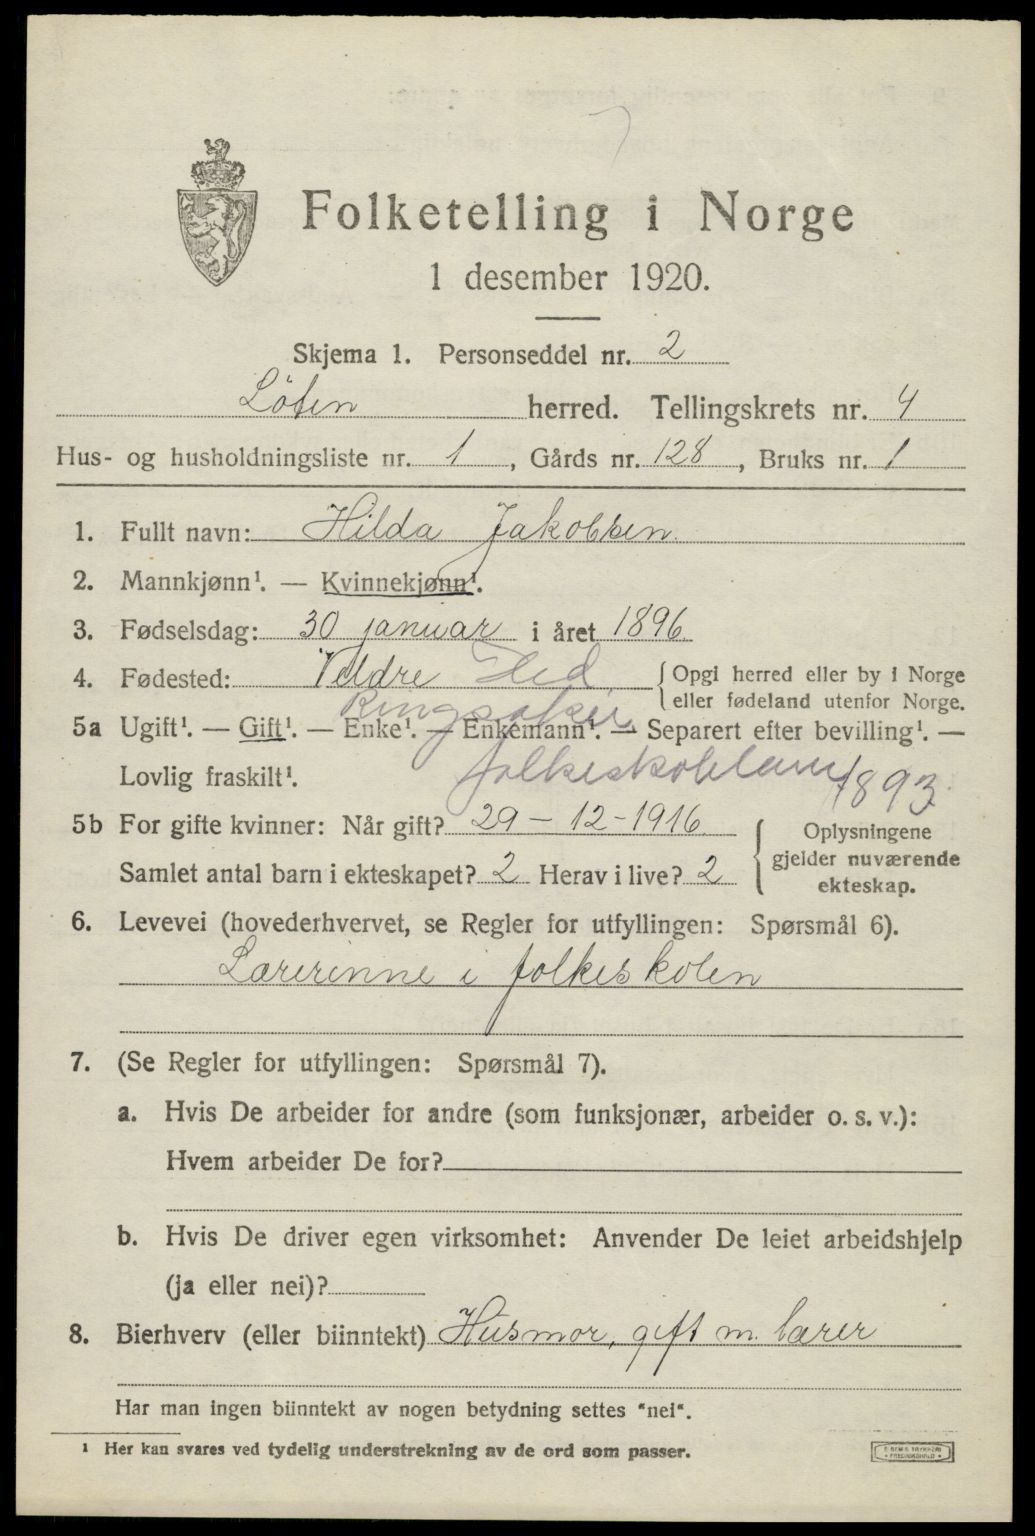 Folketelling i Norge
1 desember 1920.
Skjema 1. Personseddel nr. 2
Löten herred. Tellingskrets nr. 4
Hus- og husholdningsliste nr. 1, Gårds nr. 128, Bruks nr. 1
1. Fullt navn: Hilda Jakobsen.
2. Mannkjønn¹. — Kvinnekjønn¹.
3. Fødselsdag: 30 januar i året 1896
4. Fødested: Veldre Hed. { Opgi herred eller by i Norge
eller fødeland utenfor Norge.
Ringsaker
5a Ugift¹. — Gift¹. — Enke¹. — Enkemann¹. — Separert efter bevilling¹. —
Lovlig fraskilt¹.
1893
5b For gifte kvinner: Når gift? 29 – 12 – 1916
Samlet antal barn i ekteskapet? 2 Herav i live? 2
{ Oplysningene
gjelder nuværende
ekteskap.
6. Levevei (hovederhvervet, se Regler for utfyllingen: Spørsmål 6).
Lærerinne i folkeskolen
7. (Se Regler for utfyllingen: Spørsmål 7).
a. Hvis De arbeider for andre (som funksjonær, arbeider o. s. v.):
Hvem arbeider De for?
b. Hvis De driver egen virksomhet: Anvender De leiet arbeidshjelp
(ja eller nei)?
8. Bierhverv (eller biinntekt) Husmor, gift m. lærer
Har man ingen biinntekt av nogen betydning settes "nei".
¹ Her kan svares ved tydelig understrekning av de ord som passer.